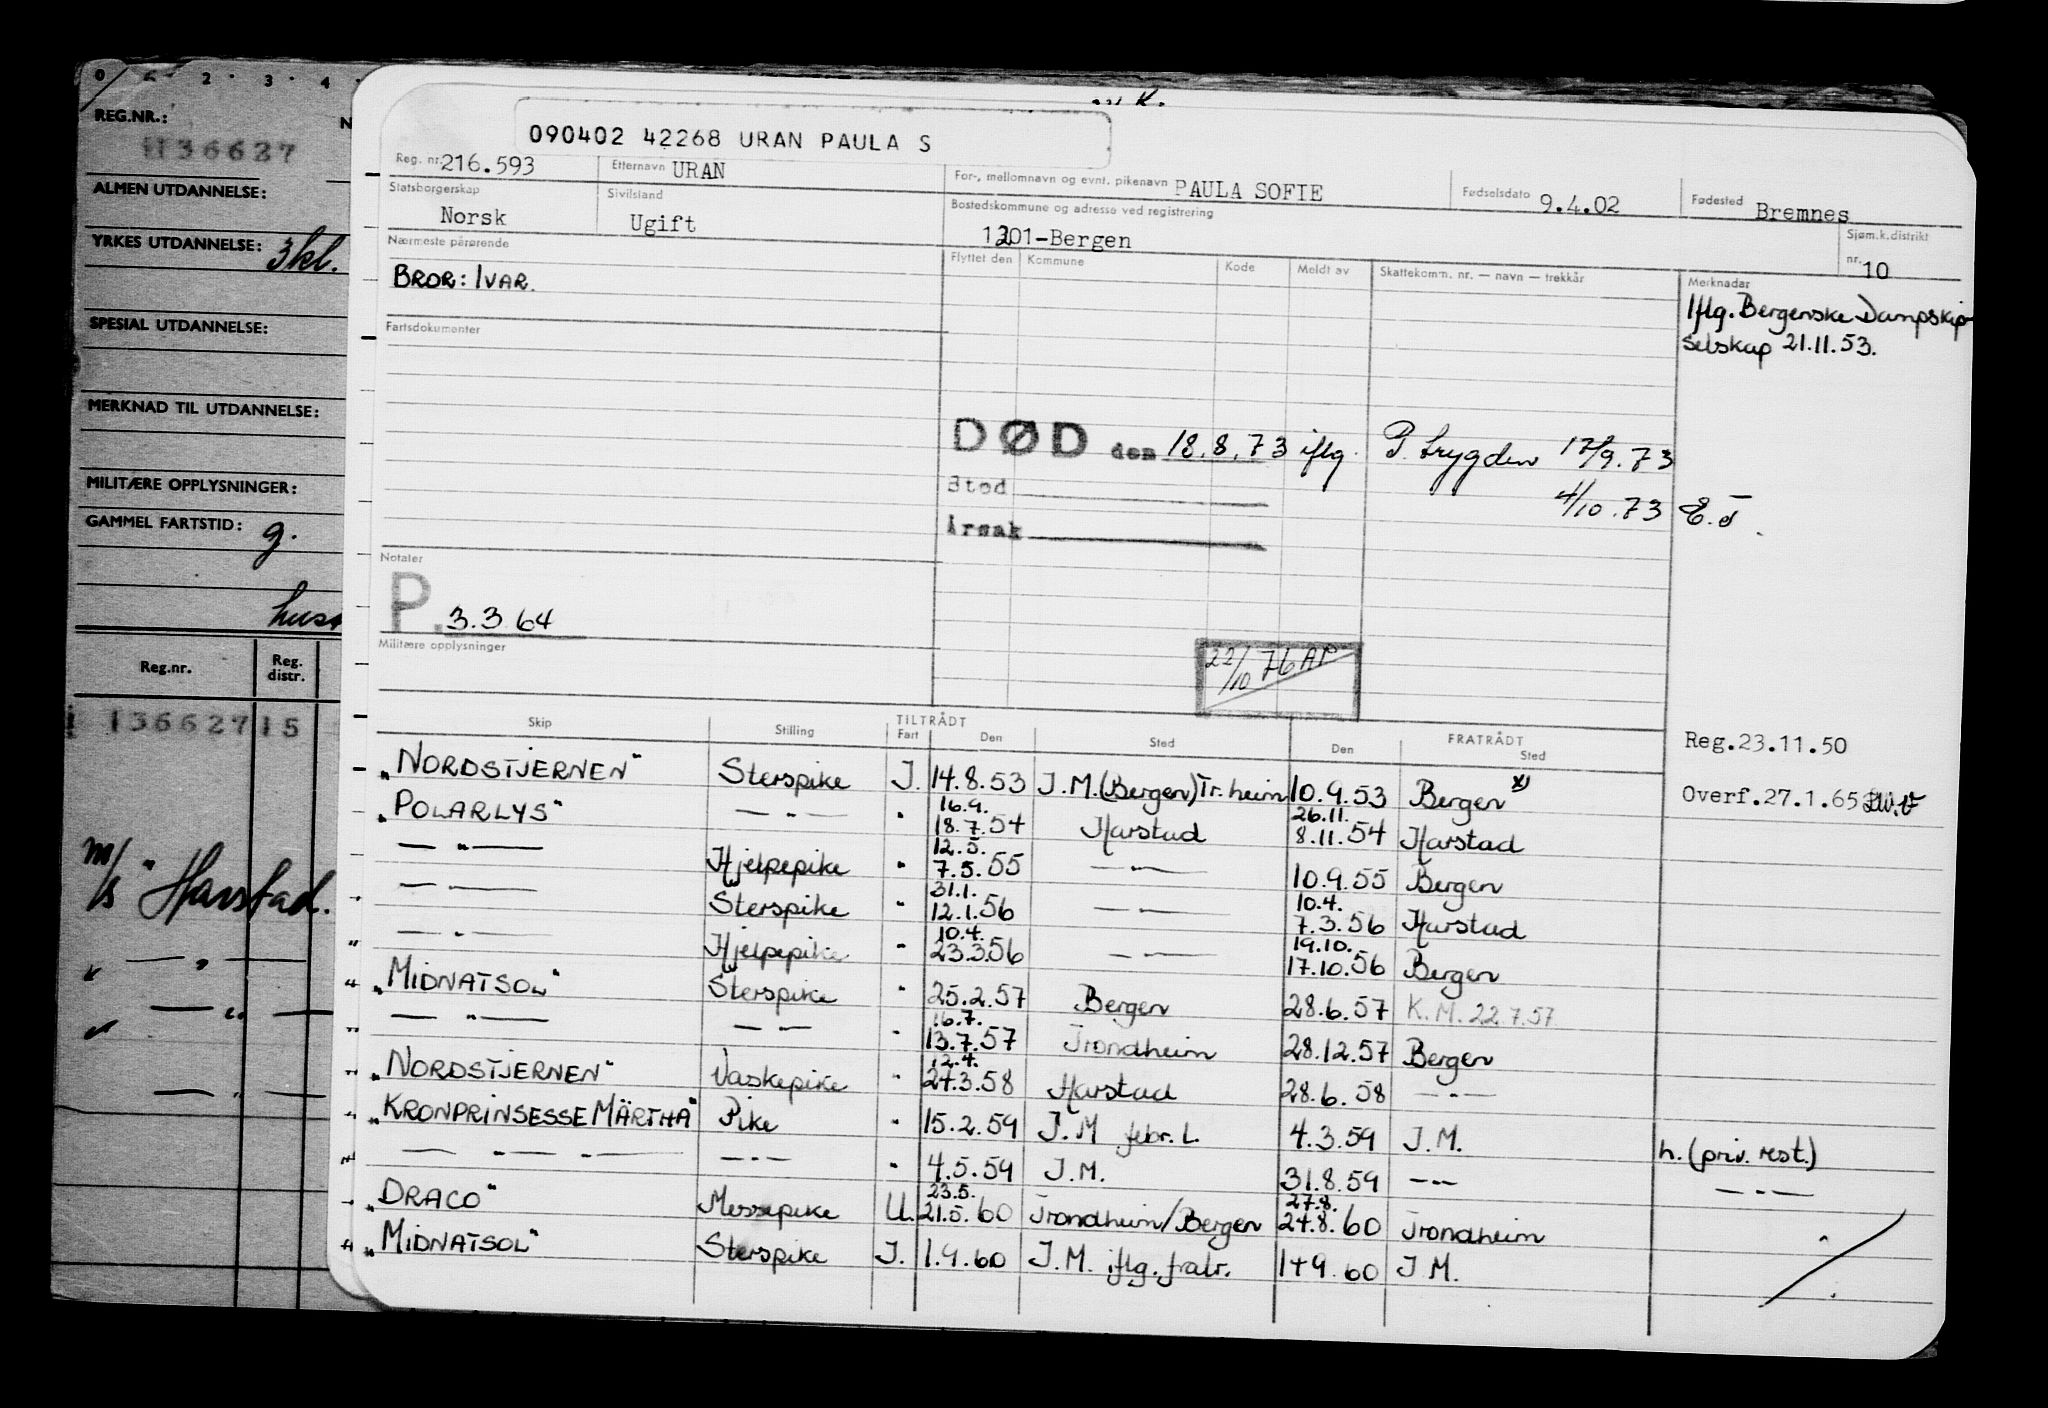 0 2 · 3 · 4 ·
REG.NR.:
136627
ALMEN UTDANNELSE:
YRKES UTDANNELSE: 3kl.
SPESIAL UTDANNELSE:
MERKNAD TIL UTDANNELSE:
MILITÆRE OPPLYSNINGER:
GAMMEL FARTSTID: g.
Reg.nr. Reg. distr.
136627 15
m/s " Harstad.
K.
090402 42268 URAN PAULA S
Reg. nr. 216.593 Etternavn URAN For-, mellomnavn og evnt. pikenavn PAULA SOFIE Fødselsdato 9.4.02 Fødested Bremnes
Statsborgerskap Norsk Sivilstand Ugift Bostedskommune og adresse ved registrering 1201-Bergen Sjøm.k.distrikt nr. 10
Nærmeste pårørende Flyttet den Kommune Kode Meldt av Skattekomm. nr. — navn — trekkår Merknader
BROR: IVAR.
Iflg. Bergenske Dampskip-
selskap 21.11.53.
Fartsdokumenter
DØD den 18.8.73 iflg. P. trygden 17/9.73
Sted 4/10.73 E.T.
Årsak
Notater
P. 3.3.64
Militære opplysninger
22/10 76 AP
Skip Stilling TILTRÅDT Fart Den Sted FRATRÅDT Den Sted
Reg.23.11.50
Overf.27.1.65
"NORDSTJERNEN" Sterspike J. 14.8.53 J.M.(Bergen)Tr.heim 10.9.53 Bergen x)
"POLARLYS" — " — " 16.9. 18.7.54 Harstad 26.11. 8.11.54 Harstad
— " — Hjelpepike " 12.5. 7.5.55 — " — 10.9.55 Bergen
— " — Sterspike " 31.1. 12.1.56 — " — 10.4. 7.3.56 Harstad
— " — Hjelpepike " 10.4. 23.3.56 — " — 19.10. 17.10.56 Bergen
"MIDNATSOL" Sterspike " 25.2.57 Bergen 28.6.57 K.M. 22.7.57
— " — — " — " 16.7. 13.7.57 Trondheim 28.12.57 Bergen
"NORDSTJERNEN" Vaskepike " 12.4. 24.3.58 Harstad 28.6.58 — " —
"KRONPRINSESSE MÄRTHA" Pike " 15.2.59 J.M febr. L. 4.3.59 J.M. h. (priv. rest.)
— " — " — — " — " 4.5.59 J.M. 31.8.59 — " — — " —
"DRACO" Messepike U. 23.5. 21.5.60 Trondheim/Bergen 27.8. 24.8.60 Trondheim
"MIDNATSOL" Sterspike J. 1.9.60 J.M. iflg. fratr. 14.9.60 J.M.